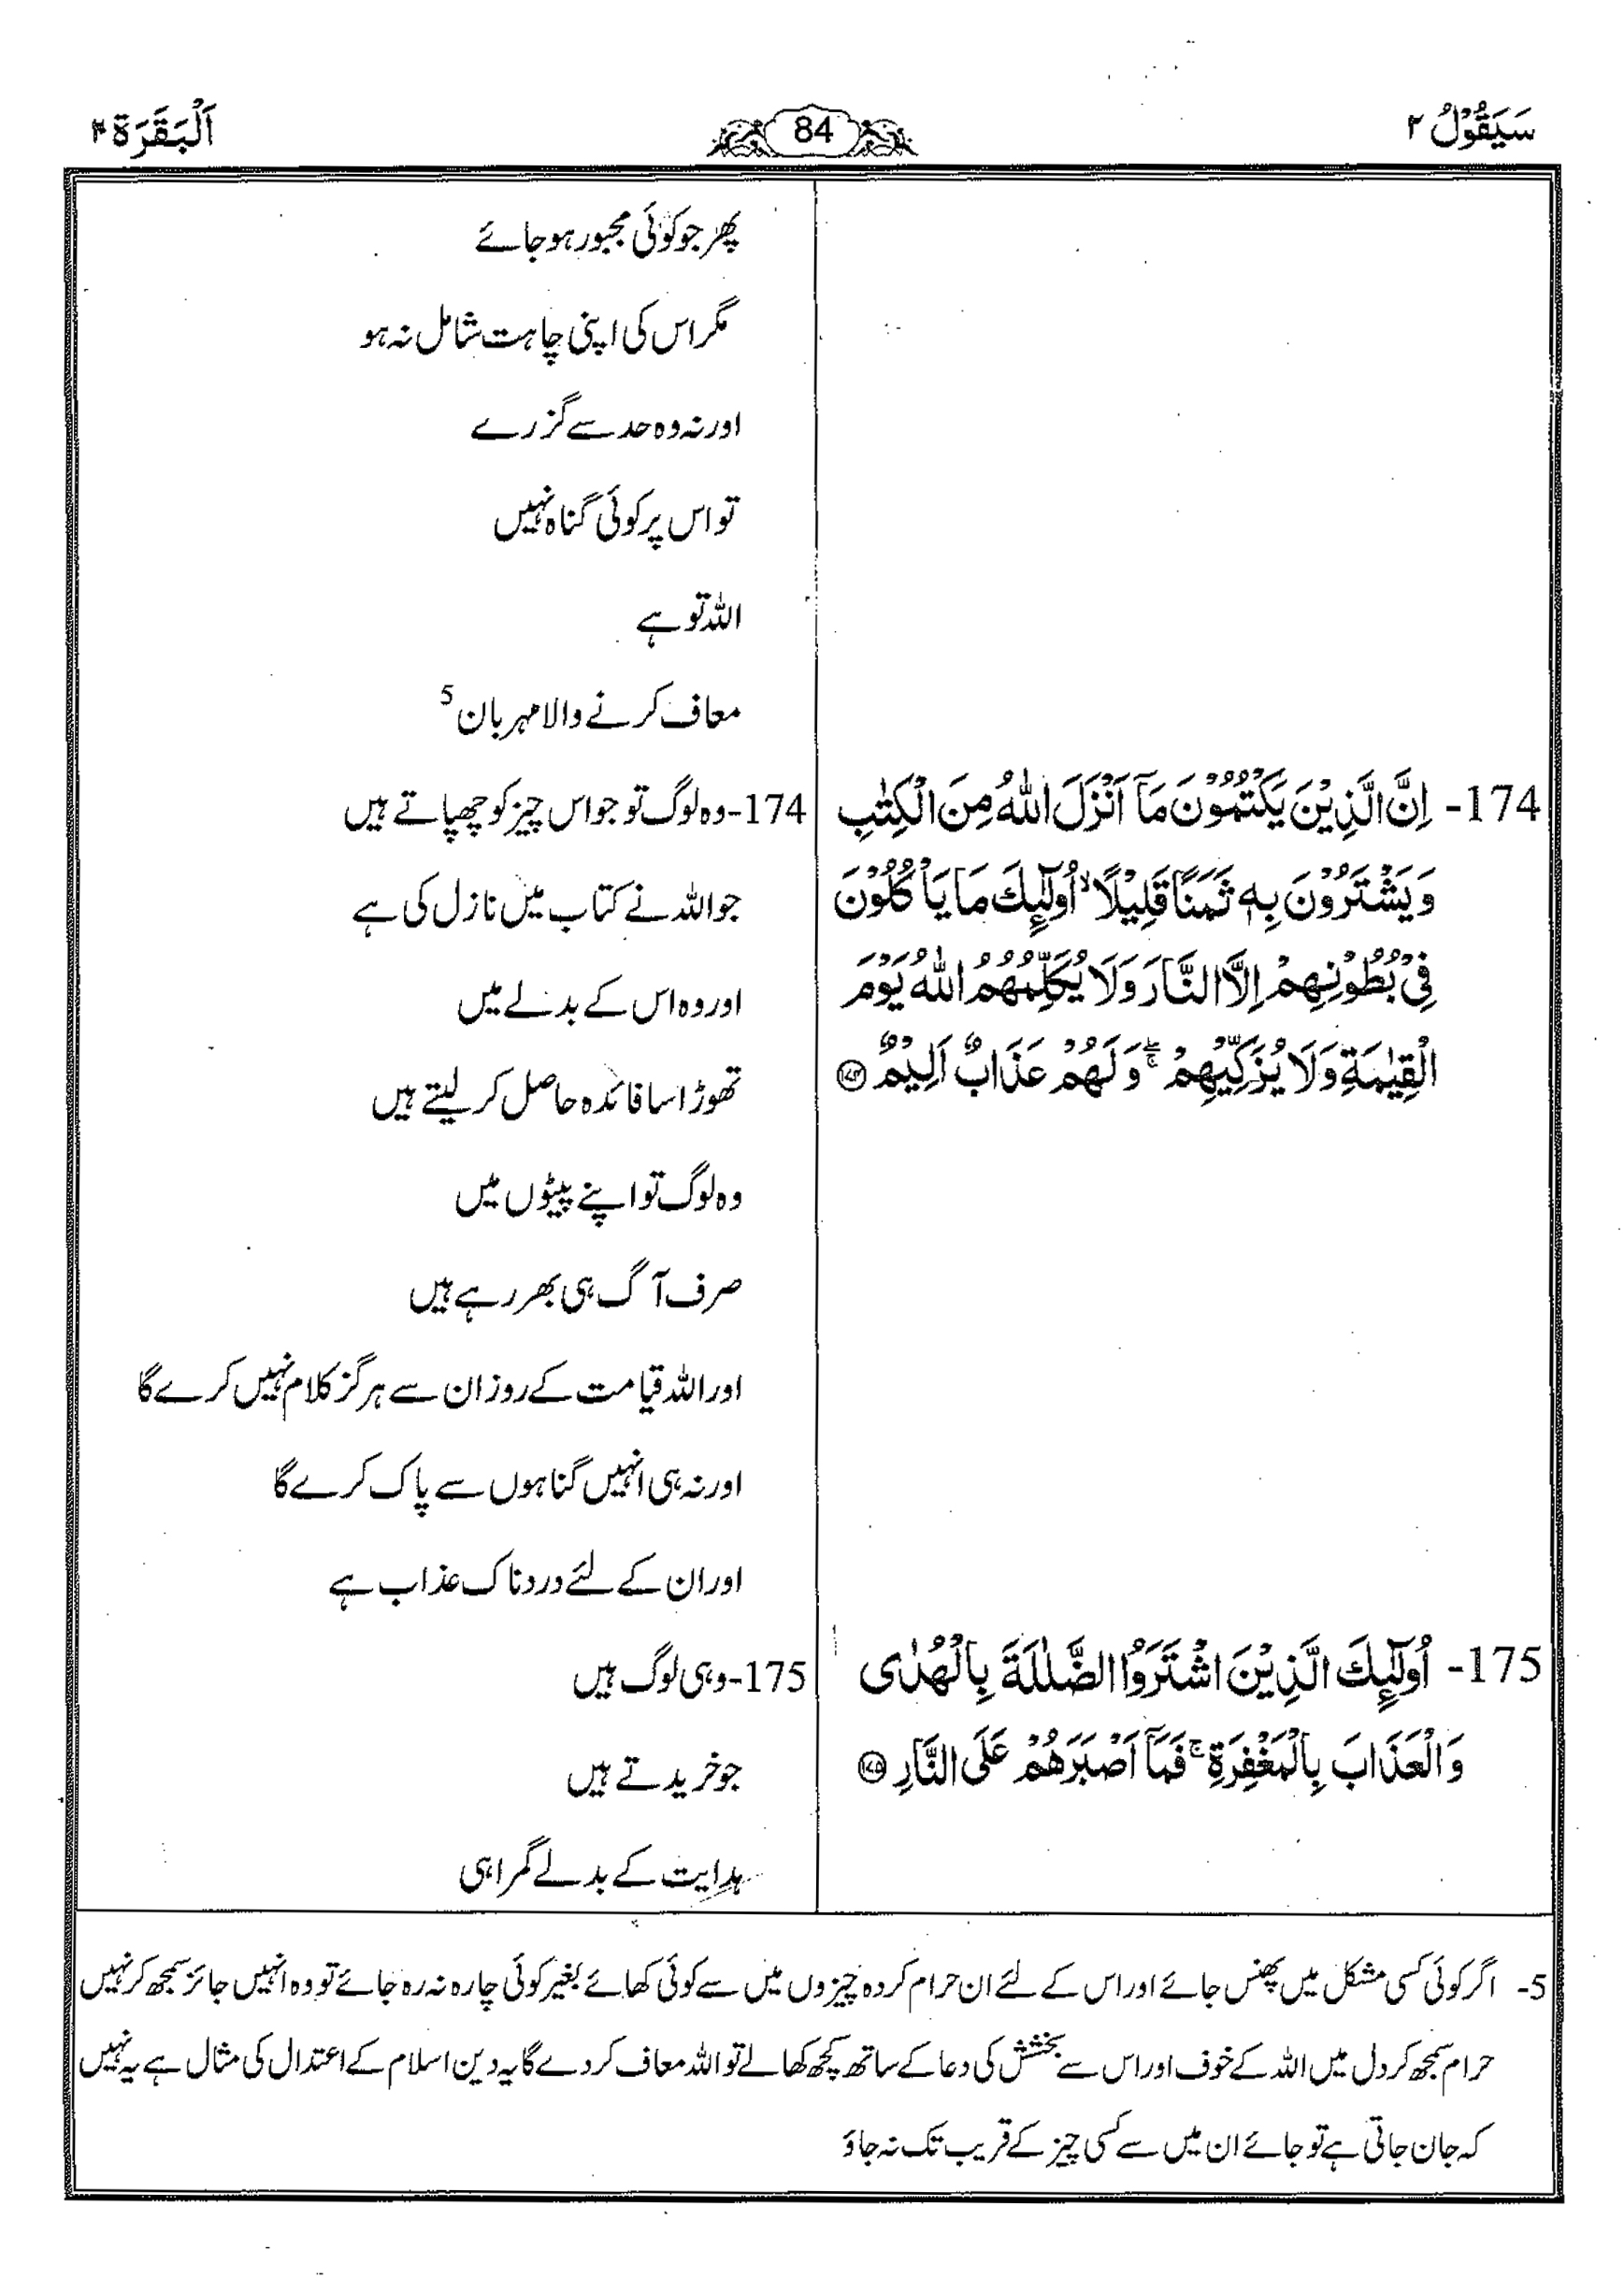 سَيَقُوْلُ ٢
84
اَلْبَقَرَة ٢
پھر جو کوئی مجبور ہو جائے
مگر اس کی اپنی چاہت شامل نہ ہو
اور نہ وہ حد سے گزرے
تو اس پر کوئی گناہ نہیں
اللہ تو ہے
معاف کرنے والا مہربان 5
174- اِنَّ الَّذِيْنَ يَكْتُمُوْنَ مَآ اَنْزَلَ اللّٰهُ مِنَ الْكِتٰبِ
وَيَشْتَرُوْنَ بِهٖ ثَمَنًا قَلِيْلًا ۙ اُولٰٓئِكَ مَا يَاْكُلُوْنَ
فِيْ بُطُوْنِهِمْ اِلَّا النَّارَ وَلَا يُكَلِّمُهُمُ اللّٰهُ يَوْمَ
الْقِيٰمَةِ وَلَا يُزَكِّيْهِمْ ۚ وَلَهُمْ عَذَابٌ اَلِيْمٌ ﴿۱۷۴﴾
174- وہ لوگ تو جو اس چیز کو چھپاتے ہیں
جو اللہ نے کتاب میں نازل کی ہے
اور وہ اس کے بدلے میں
تھوڑا سا فائدہ حاصل کر لیتے ہیں
وہ لوگ تو اپنے پیٹوں میں
صرف آگ ہی بھر رہے ہیں
اور اللہ قیامت کے روز ان سے ہرگز کلام نہیں کرے گا
اور نہ ہی انہیں گناہوں سے پاک کرے گا
اور ان کے لئے دردناک عذاب ہے
175- اُولٰٓئِكَ الَّذِيْنَ اشْتَرَوُا الضَّلٰلَةَ بِالْهُدٰى
وَالْعَذَابَ بِالْمَغْفِرَةِ ۚ فَمَآ اَصْبَرَهُمْ عَلَى النَّارِ ﴿۱۷۵﴾
175- وہی لوگ ہیں
جو خریدتے ہیں
ہدایت کے بدلے گمراہی
5- اگر کوئی کسی مشکل میں پھنس جائے اور اس کے لئے ان حرام کردہ چیزوں میں سے کوئی کھائے بغیر کوئی چارہ نہ رہ جائے تو وہ انہیں جائز سمجھ کر نہیں
حرام سمجھ کر دل میں اللہ کے خوف اور اس سے بخشش کی دعا کے ساتھ کچھ کھا لے تو اللہ معاف کر دے گا یہ دین اسلام کے اعتدال کی مثال ہے یہ نہیں
کہ جان جاتی ہے تو جائے ان میں سے کسی چیز کے قریب تک نہ جاؤ